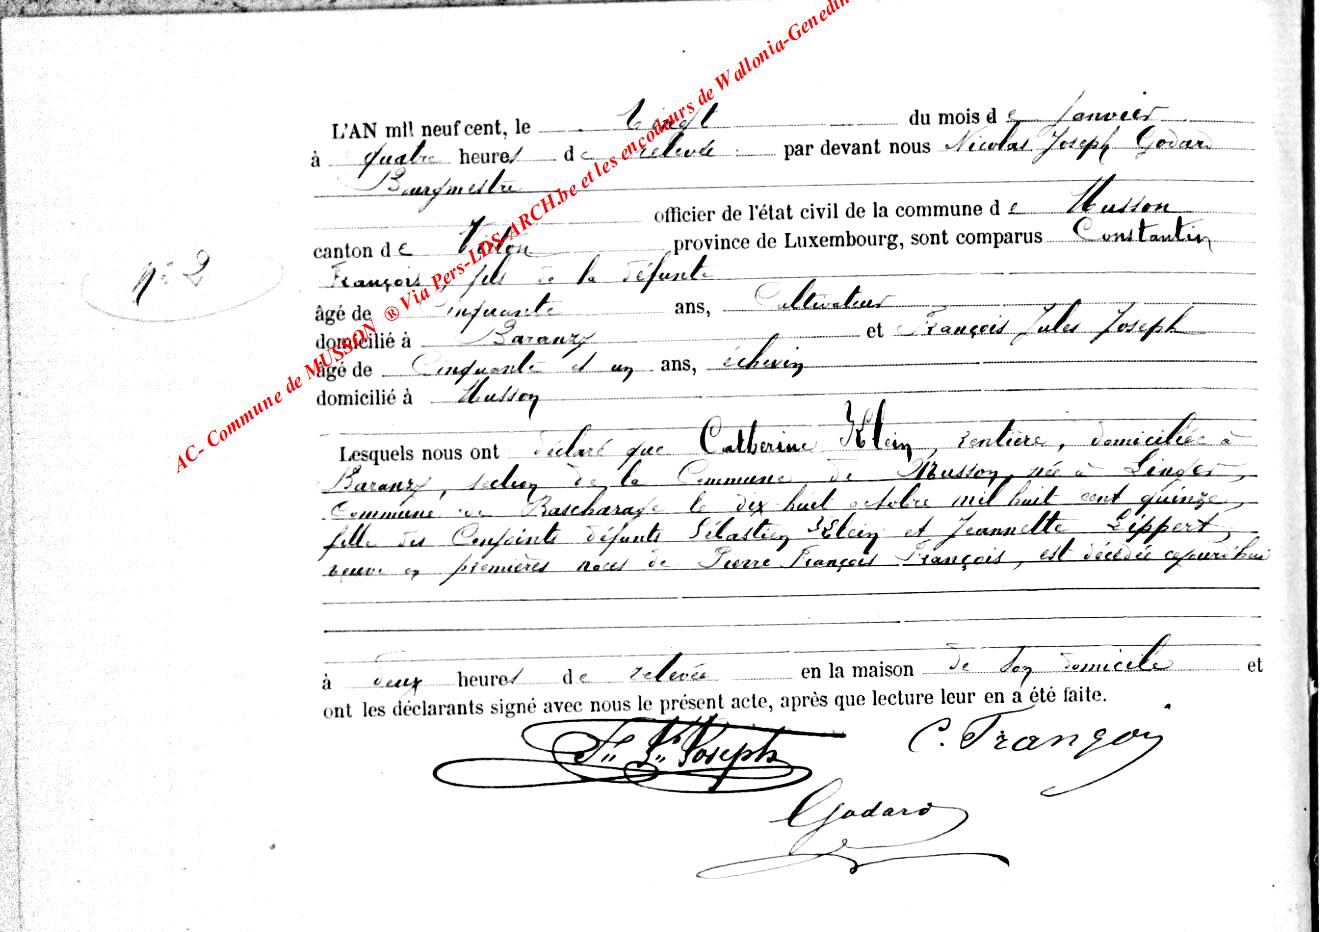 AC- Commune de MUSSON ® Via Pers-LDS-ARCH.be et les encodeurs de Wallonia-Genedin
L'AN mil neuf cent, le du mois de Janvier
à quatre heures de relevée par devant nous Nicolas Joseph Godard
Bourgmestre
officier de l'état civil de la commune de Musson
canton de Virton province de Luxembourg, sont comparus Constantin
François, fils de la défunte
âgé de Cinquante ans, Cultivateur
domicilié à Baranzy et François Jules Joseph
âgé de Cinquante et un ans, échevin
domicilié à Musson
N° 2
Lesquels nous ont déclaré que Catherine Klein, rentière, domiciliée à
Baranzy, section de la Commune de Musson, née à Linger,
Commune de Bascharage le dix huit octobre mil huit cent quinze,
fille des Conjoints défunts Sébastien Klein et Jeannette Lippert,
veuve en premières noces de Pierre François François, est décédée cejourd'hui
à deux heures de relevée en la maison de son domicile et
ont les déclarants signé avec nous le présent acte, après que lecture leur en a été faite.
Joseph C. François
Godard